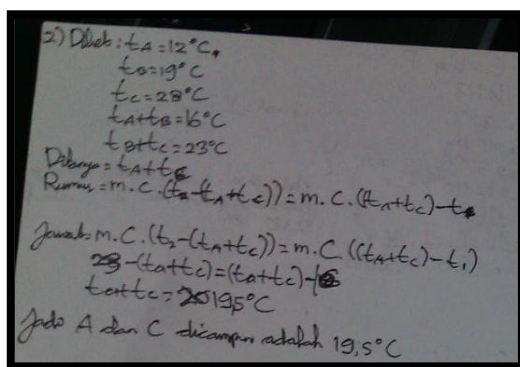 2) Diket : tA = 12°C,
tB = 19°C
tC = 28°C
tA+tB = 16°C
tB+tC = 23°C
Ditanya = tA+tC
Rumus = m.C.(t2-(tA+tC)) = m.C.(tA+tC)-t
Jawab: m.C.(t2-(tA+tC)) = m.C.((tA+tC)-t1)
23-(ta+tc) = (ta+tc)-16
ta+tc = 19,5°C
Jadi A dan C dicampur adalah 19,5°C